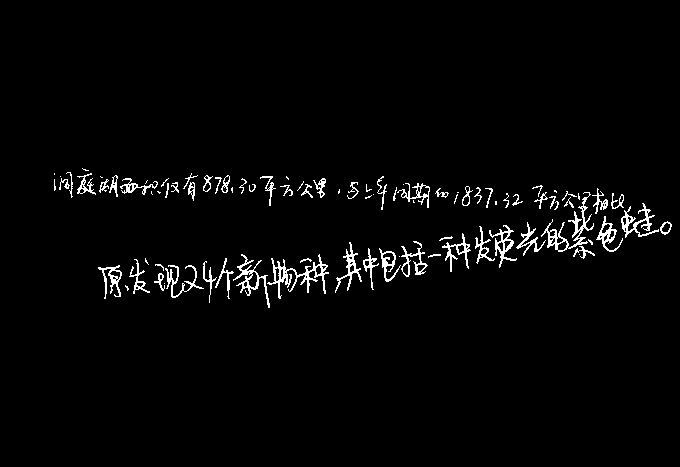 洞庭湖面积仅有878.30平方公里，与上年同期的1837.32平方公里相比，
原发现24个新物种，其中包括一种发荧光的紫色蛙。